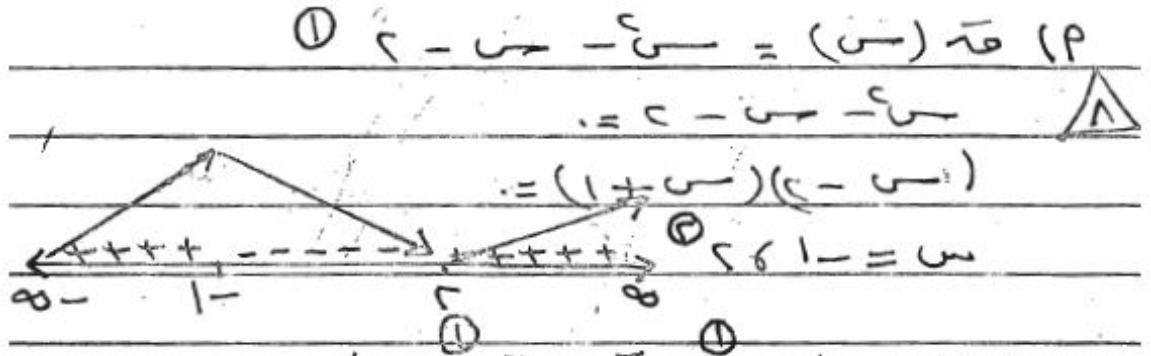 P) قَ (س) = س² - س - ٢ ①
٨ س² - س - ٢ = ٠
(س - ٢)(س + ١) = ٠
س = -١ ، ٢ ② + + + + + - - - - - - + + + +
∞ ٢ -١ -∞
① ①